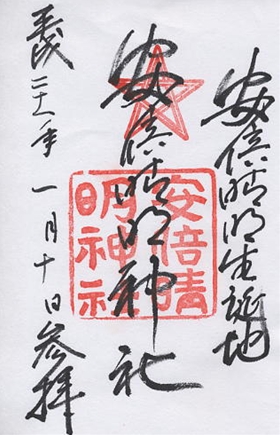 安倍晴明生誕地
安倍晴明神社
安倍晴
明神社
平成二十一年一月十日参拝